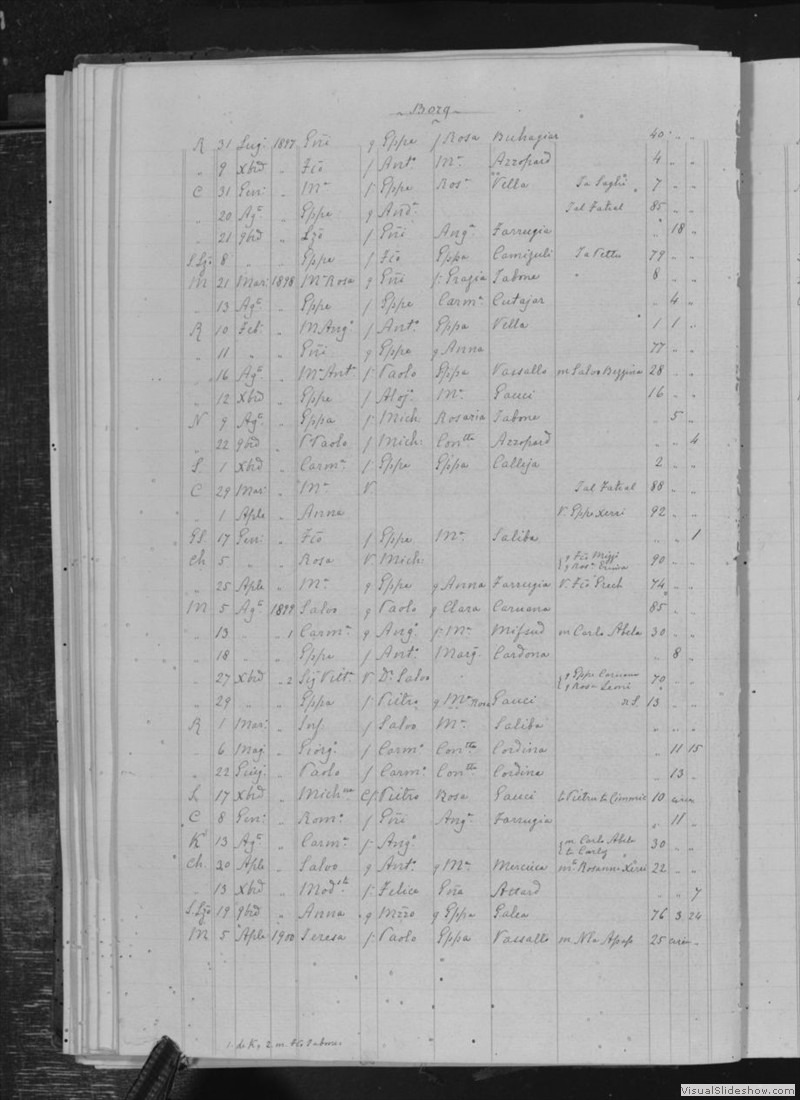 Borg
R 31 Lug: 1897 Gni g Eppe f Rosa Buhagiar 40 " "
" 9 Xbre " Fco f Anto Ma Azzopard 4 " "
C 31 Gen: " Ma f: Eppe Rosa Vella 7 " "
" 20 Ago " Eppe g And: Tal Fatal 85 " "
" 21 9bre " Lzo f Gni Anga Farrugia " 18 "
S.Lzo 8 " " Eppa f Fco Eppa Camizuli 79 " "
M 21 Mar: 1898 Ma Rosa g Gni f: Grazia Tabone 8 " "
" 13 Ago " Eppe f Eppe Carma Cutajar " 4 "
R 10 Feb: " M Anga f Anto Eppa Vella 1 1 "
" 11 " " Gni g Eppe g Anna 77 " "
" 16 Ago " Ma Anta f: Paolo Eppa Vassallo m Salvo Bezzina 28 " "
" 12 Xbre " Eppe f Aloja Ma Gauci 16 " "
N 9 Ago " Eppa f: Mich: Rosaria Tabone " 5 "
" 22 9bre " Paolo f Mich: Contta Azzopard " " 4
S 1 Xbre " Carma f: Eppe Eppa Calleja 2 " "
C 29 Mar: " Ma V. Tal Fatal 88 " "
" 1 Aple " Anna V. Eppe Xerri 92 " "
17 Gen: " Fco f Eppe Ma Saliba " " 1
Ch 5 " " Rosa V. Mich: g Fco Mizzi g Rosa 90 " "
" 25 Aple " Ma g Eppe g Anna Farrugia V. Fco Grech 74 " "
M 5 Ago 1899 Salvo g Paolo g Clara Caruana 85 " "
" 13 " " 1 Carma g Ango f: Ma Mifsud m Carlo Abela 30 " "
" 18 " " Eppe f Anto Marg. Cardona " 8 "
" 27 Xbre " 2 Sig Vitta V. Dr Salvo g Eppe Caruana g Rosa 70 " "
" 29 " " Eppa f: Pietro g Ma Rosa Gauci n.S. 13 " "
R 1 Mar: " f Salvo Ma Saliba " " "
" 6 Mag: " Giorgo f Carmo Contta Cordina " 11 15
" 22 Giug: " Paolo f Carmo Contta Cordina " 13 "
S 17 Xbre " f: Pietro Rosa Gauci 10 "
C 8 Gen: " Romo f Gni Anga Farrugia " 11 "
K 13 Ago " Carma f: Ango m Carlo Abela 30 " "
Ch. 30 Aple " Salvo g Anto g Ma Mercieca ma Rosanna Xerri 22 " "
" 13 Xbre " Modsta f: Felice Gna Attard " " 7
S.Lzo 19 9bre " Anna g Mizzo g Eppa Galea 76 3 24
M 5 Aple 1900 Teresa f: Paolo Eppa Vassallo m 25 "
1. 2. m. Fco Tabone.
VisualSlideshow.com